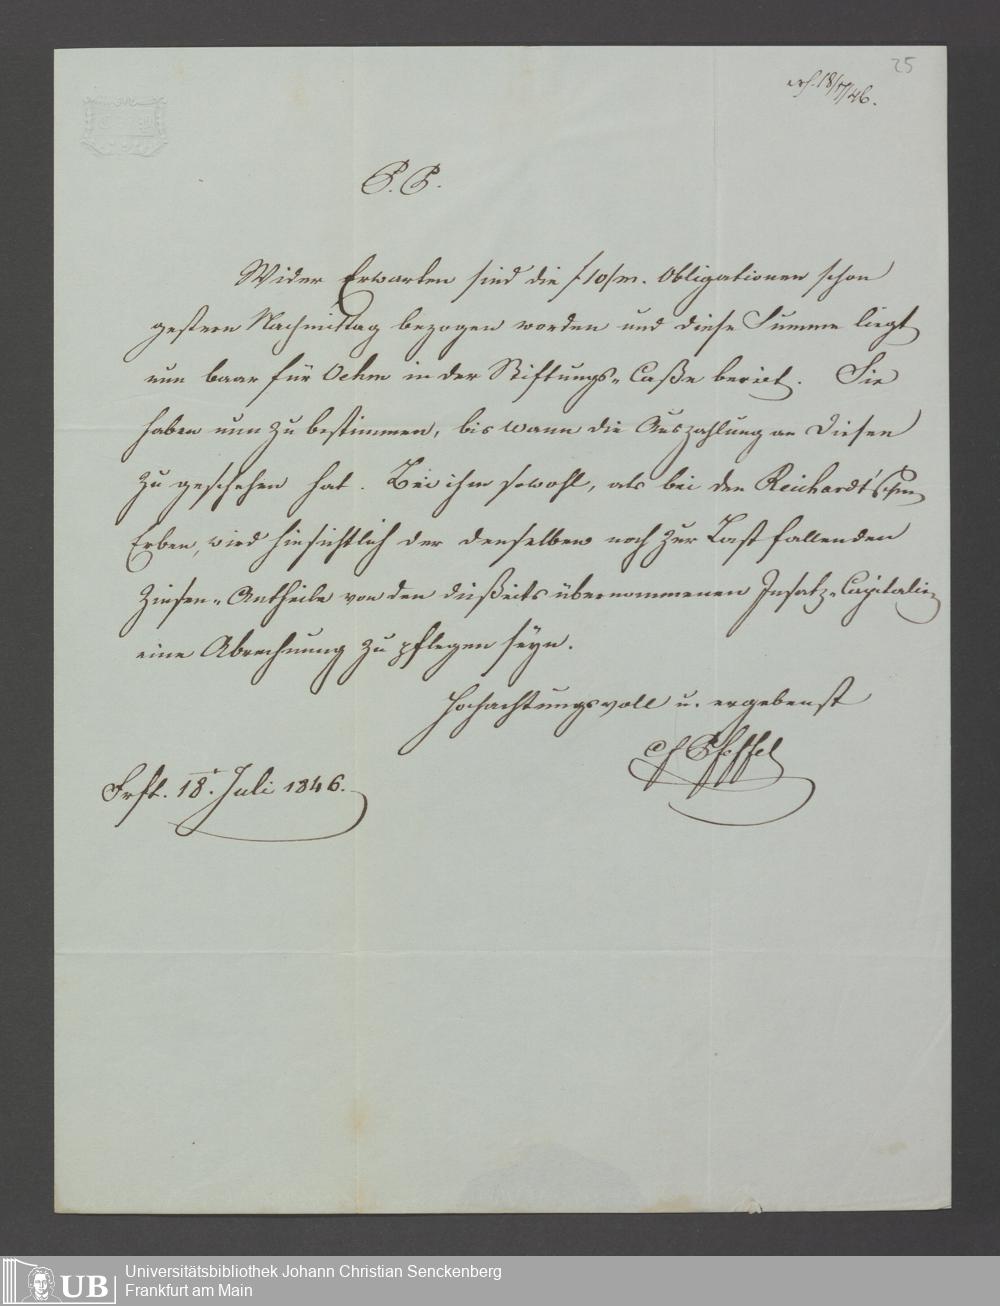 25
erh. 18/7/46.
P. P.
Wider Erwarten sind die f 10/m. Obligationen schon
gestern Nachmittag bezogen worden und diese Summe liegt
nun baar für Oehm in der Stiftungs-Caße bereit. Sie
haben nun zu bestimmen, bis wann die Auszahlung an Diesen
zu geschehen hat. Bei ihm sowohl, als bei den Reichardt'schen
Erben, wird hinsichtlich der denselben noch zur Last fallenden
Zinsen-Antheile von den dießeits übernommenen Insatz-Capitalien
eine Abrechnung zu pflegen seyn.
Hochachtungsvoll u. ergebenst
CF Pfeffel
Frft. 18r. Juli 1846.
UB
Universitätsbibliothek Johann Christian Senckenberg
Frankfurt am Main